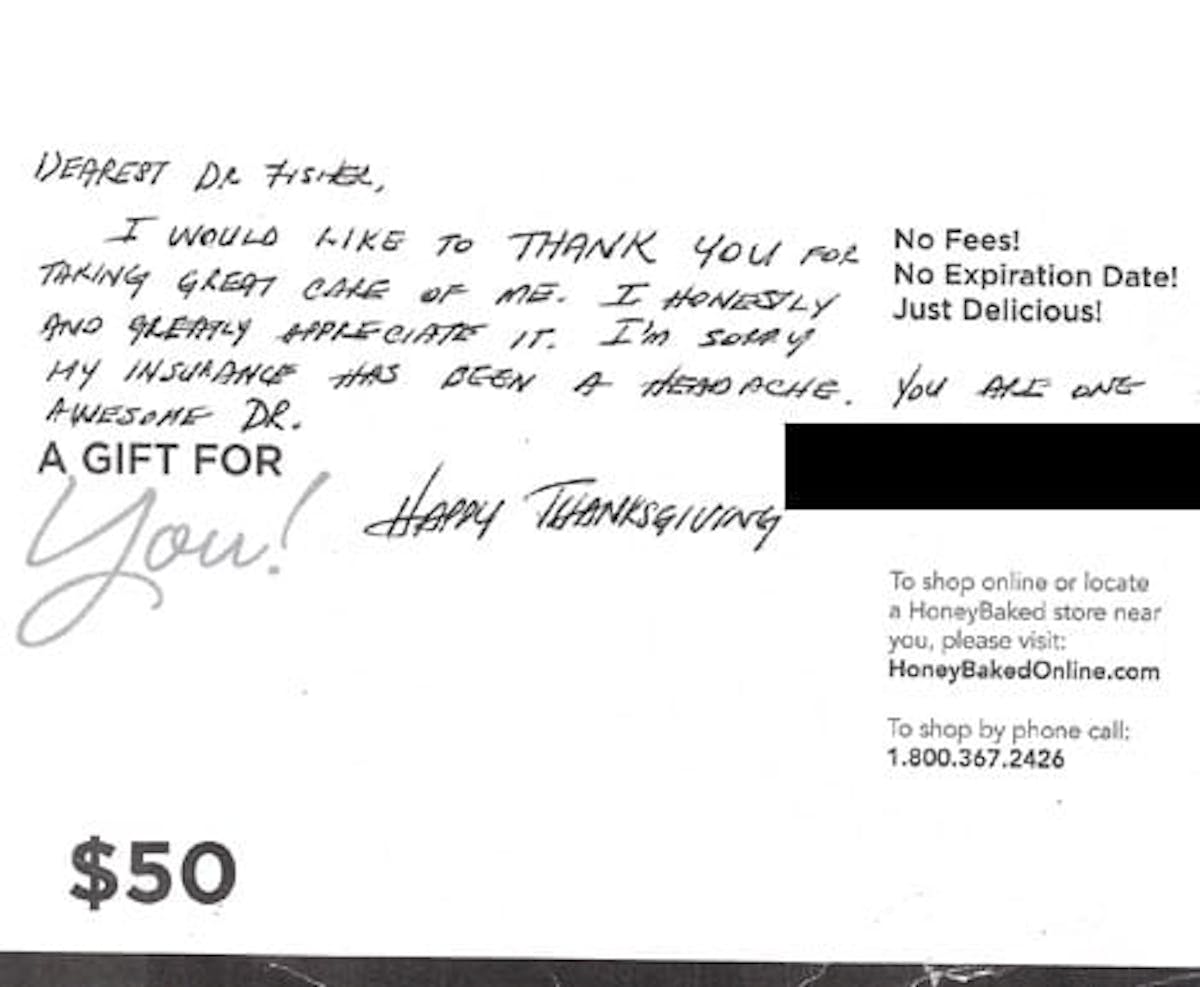 DEAREST DR FISHER,
I WOULD LIKE TO THANK YOU FOR
TAKING GREAT CARE OF ME. I HONESTLY
AND GREATLY APPRECIATE IT. I'M SORRY
MY INSURANCE HAS BEEN A HEADACHE. YOU ARE ONE
AWESOME DR.
HAPPY THANKSGIVING
A GIFT FOR
You!
No Fees!
No Expiration Date!
Just Delicious!
To shop online or locate
a HoneyBaked store near
you, please visit:
HoneyBakedOnline.com
To shop by phone call:
1.800.367.2426
$50